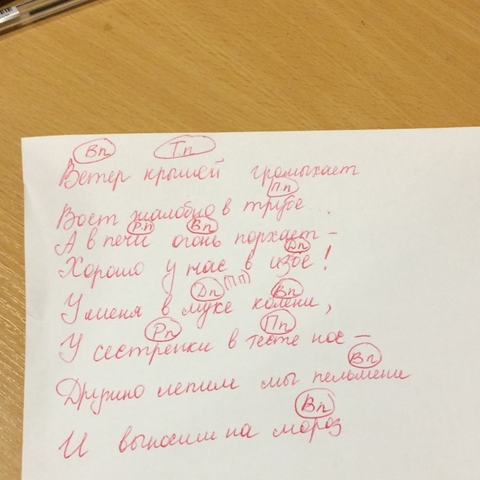 Вп Тп
Ветер крышей громыхает
Пп
Воет жалобно в трубе.
Рп Вп
А в печи огонь порхает –
Дп
Хорошо у нас в избе!
Дп (Пп) Вп
У меня в муке колени,
Рп Пп
У сестрёнки в тесте нос –
Вп
Дружно лепим мы пельмени
Вп
И выносим на мороз